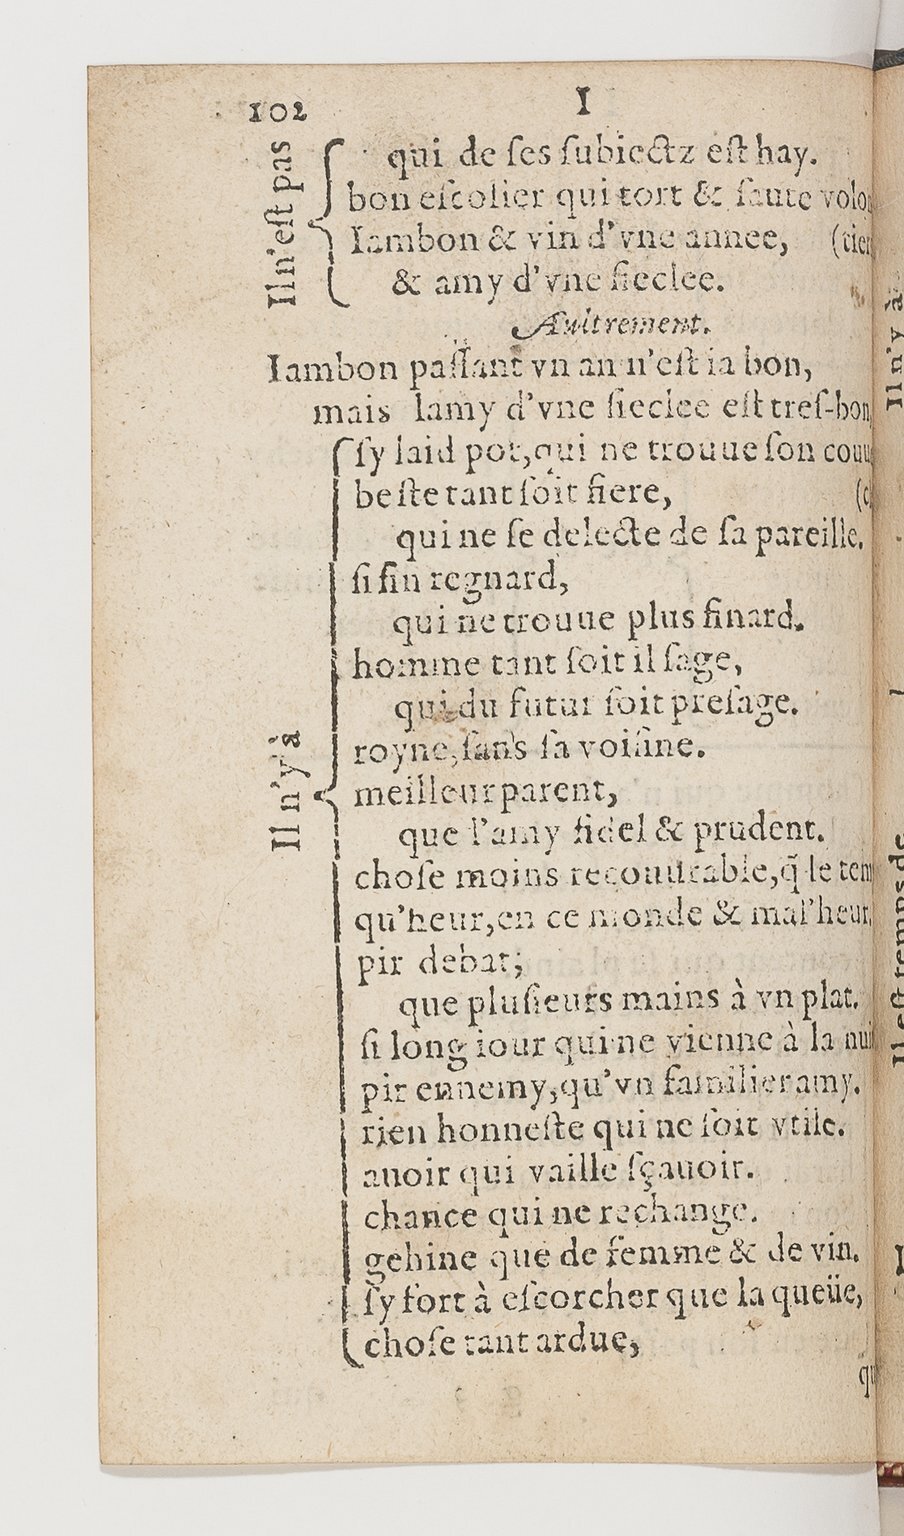 102
I
Il n'est pas
qui de ses subiectz est hay.
bon escolier qui tort & saute volo
Iambon & vin d'vne annee, (tier
& amy d'vne sieclee.
Autrement.
Iambon passant vn an n'est ia bon,
mais lamy d'vne sieclee est tres-bon
Il n'y à
sy laid pot, qui ne trouue son couu
beste tant soit fiere, (c
qui ne se delecte de sa pareille.
si fin regnard,
qui ne trouue plus finard.
homme tant soit il sage,
qui du futur soit presage.
royne, sans sa voisine.
meilleur parent,
que l'amy fidel & prudent.
chose moins recouurable, q̃ le tem
qu'heur, en ce monde & mal'heur,
pir debat;
que plusieurs mains à vn plat.
si long iour qui ne vienne à la nui
pir ennemy, qu'vn familier amy.
rien honneste qui ne soit vtile.
auoir qui vaille sçauoir.
chance qui ne rechange.
gehine que de femme & de vin.
sy fort à escorcher que la queüe,
chose tant ardue,
qu
Il n'y à